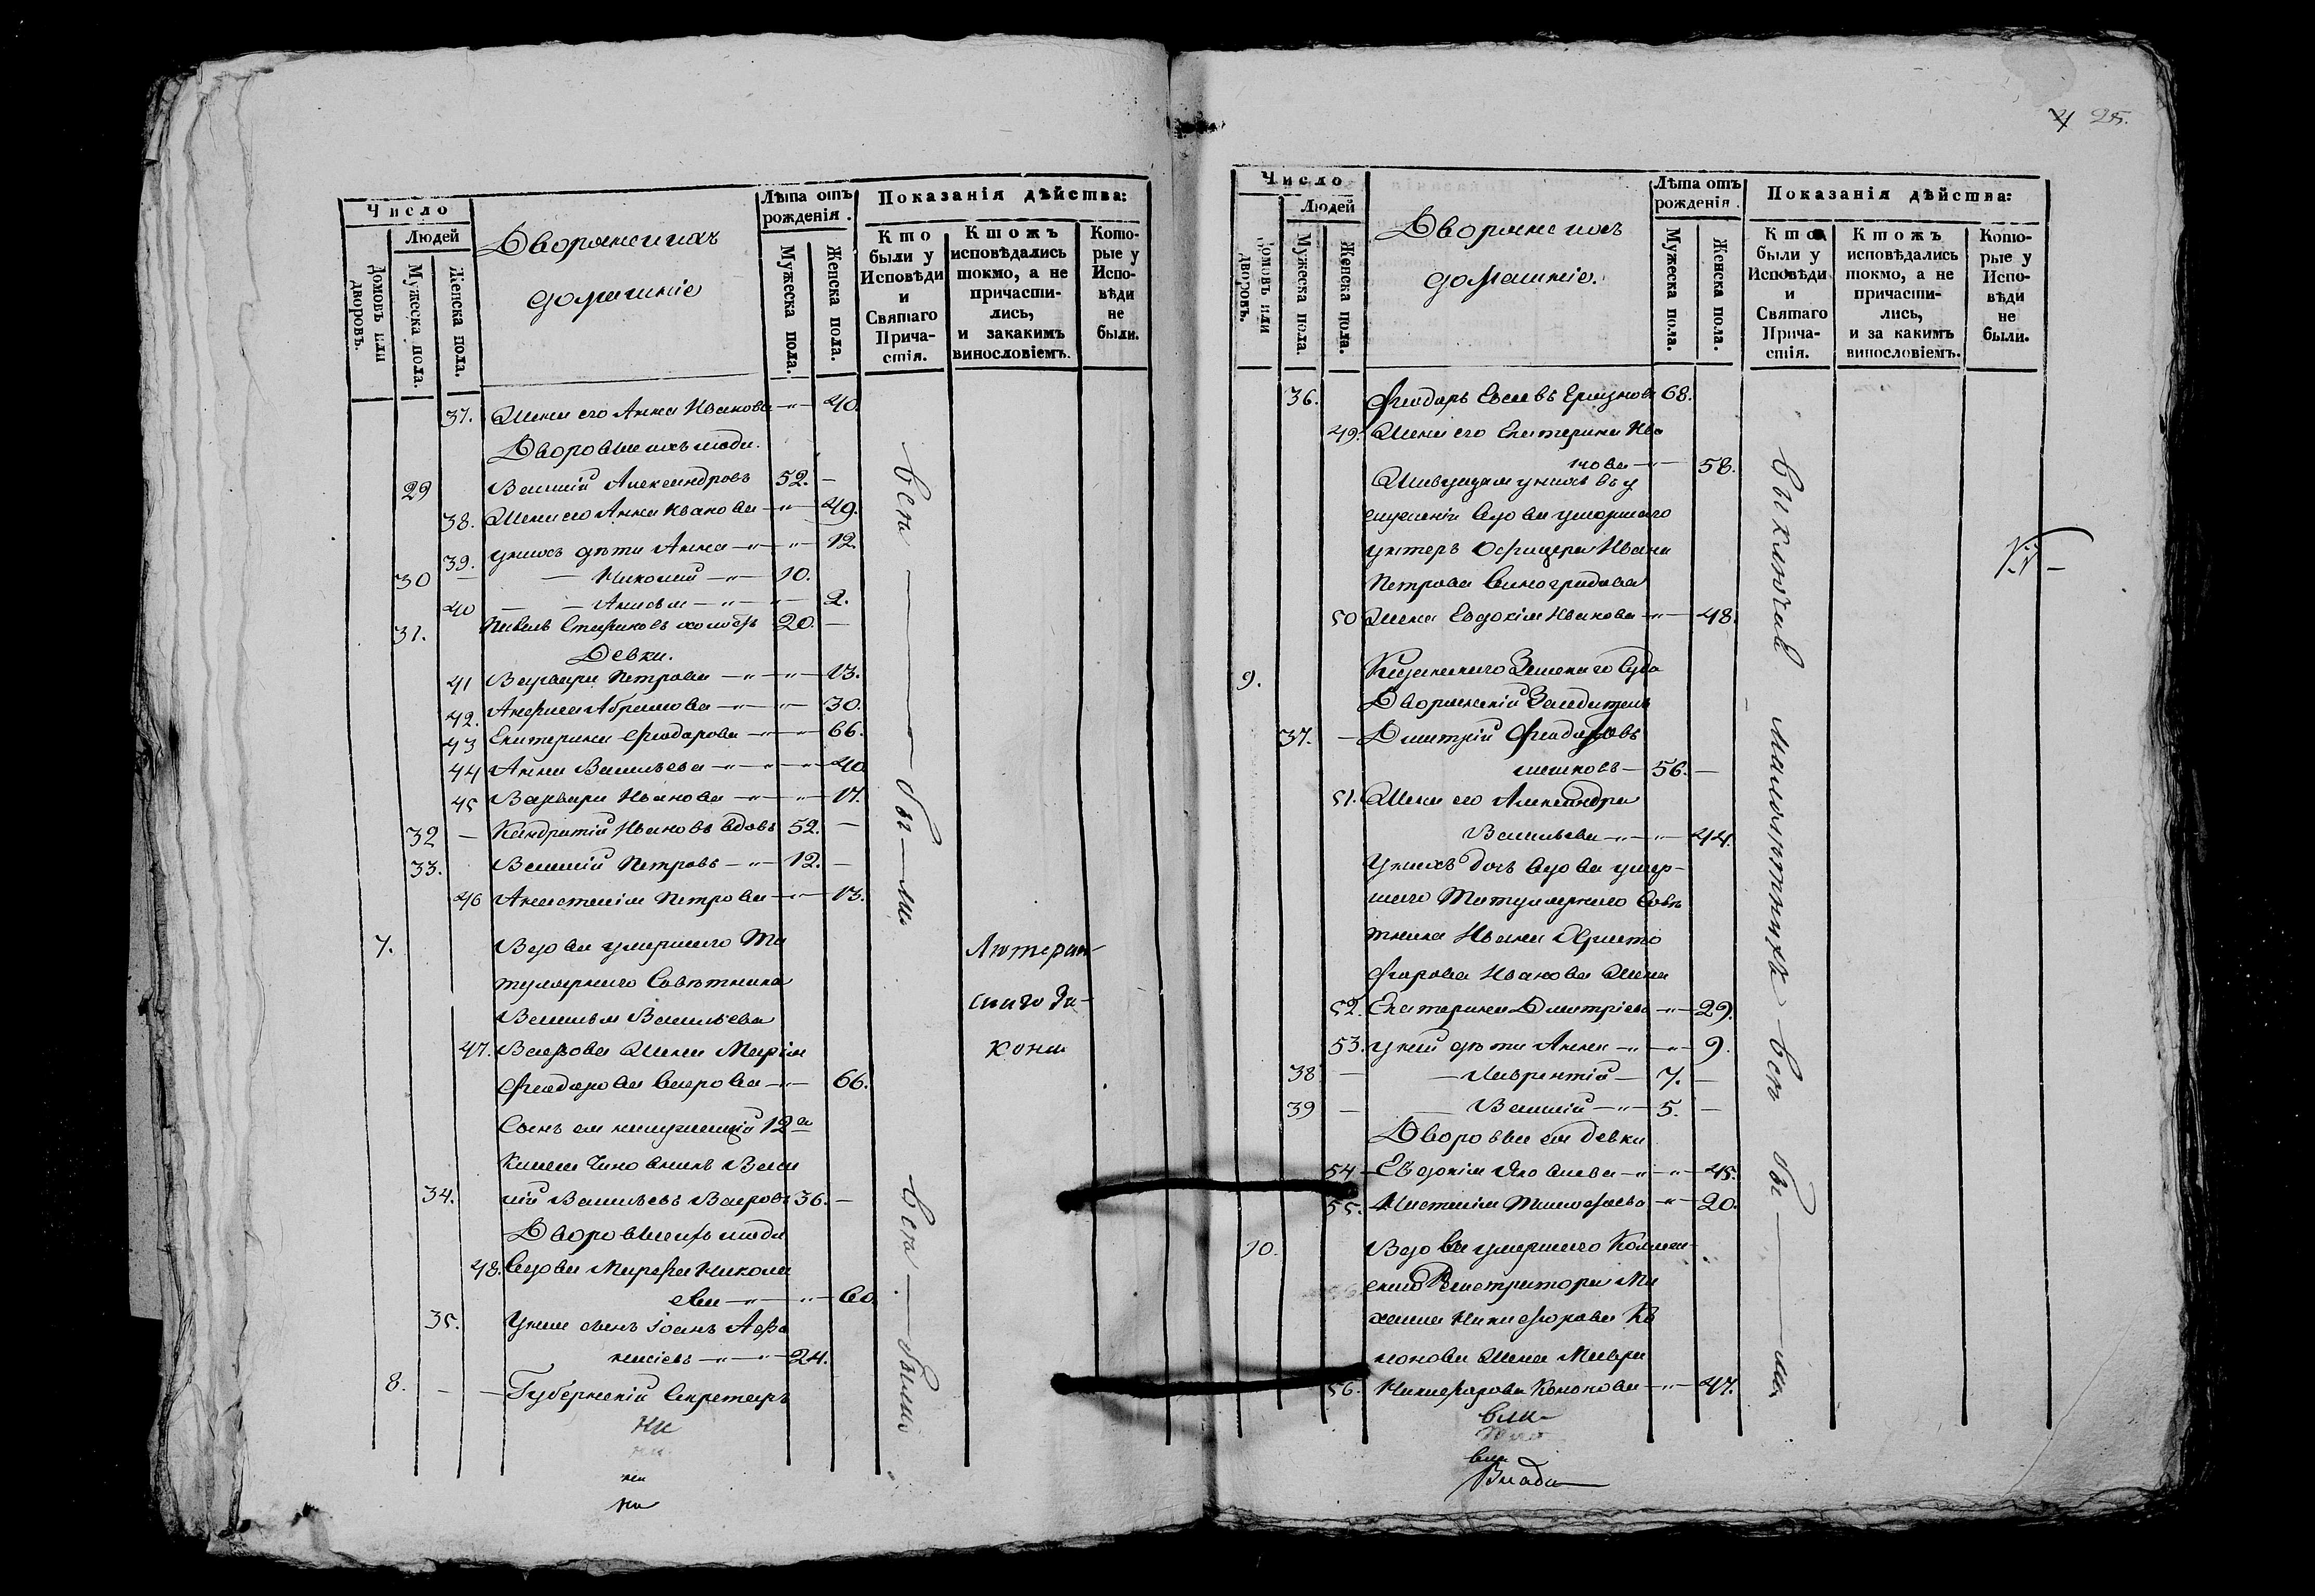 Число
Людей
Домовъ или дворовъ.
Мужеска пола.
Женска пола.
Дворяне и ихъ
домашніе
Лѣта отъ рожденія.
Мужеска пола.
Женска пола.
Показанія дѣйства:
Кто были у Исповѣди и Святаго Прича-стія.
Ктожъ исповѣдались токмо, а не причасти-лись, и закакимъ винословіемъ.
Кото-рые у Испо-вѣди не были.
37. Жена его Анна Иванова —"— 40.
Дворовые ихъ люди.
29 Василій Александровъ 52. —
38. Жена его Анна Иванова —"— 49.
39. у нихъ дѣти Анна —"— 12.
30 — Николай —"— 10.
40 — — Анисья —"— 2.
31. Павелъ Стефановъ холостъ 20. —
Девки.
41 Варвара Петрова —"— 13.
42. Абрамова —"— 30.
43 Екатерина Феодорова —"— 66.
44 Анна Васильева —"— 40
45 Варвара Иванова —"— 17.
32 — Кандратій Ивановъ вдовъ 52. —
33. Василій Петровъ —"— 12. —
46 Анастасія Петрова —"— 13.
Всѣ — бы — ли
7. Вдова умершаго Ти
тулярнаго Совѣтника
Василья Васильева
47. Жена Марія
Феодорова —"— 66.
Лютеран-
скаго за-
кона
Сынъ ея 12го
класа Чиновникъ Васи
34. лій Васильевъ 36. —
Дворовые ихъ люди
48. вдова Марфа Никола
ева —"— 60.
35. У нея сынъ Іоанъ Афа
насіевъ —"— 24.
8. — — Губернскій Секретарь
Всѣ — были
на
на
на
25.
Число
Людей
Домовъ или дворовъ.
Мужеска пола.
Женска пола.
Дворяне ихъ
домашніе.
Лѣта отъ рожденія.
Мужеска пола.
Женска пола.
Показанія дѣйства:
Кто были у Исповѣди и Святаго Прича-стія.
Ктожъ исповѣдались токмо, а не причасти-лись, и за какимъ винословіемъ.
Кото-рые у Испо-вѣди не были.
36. Феодоръ 68.
49. Жена его Екатерина Ива
нова —"— 58.
у нихъ въ у
служеніи вдова умершаго
унтеръ Офицера Ивана
Петрова Виноградова
50 Жена Евдокія Иванова —"— 48.
9. Земскаго Суда
Дворянскій Заседатель
37. — Дмитрій Феодоровъ
56. —
51. Жена его Александра
Васильева —"— 44.
У нихъ дочь вдова умер-
шаго Титулярнаго Совѣ
тника Ивана Христо
форова Иванова Жена
52. Екатерина Дмитріева —"— 29.
53. у ней дѣти Анна —"— 9.
38 — — Лаврентій — 7. —
39 — — Василій —"— 5. —
Дворовыя ея девки
54 — Евдокія —"— 45.
55. Настасія Тимофеева —"— 20.
10. Вдова умершаго Колеж-
скаго Регистратора Ми
хаила Никифорова Ко
нонова Жена Мавра
56. Никифорова Кононова —"— 47.
выключая малолѣтнихъ всѣ бы — ли.
вла
вла
Влади